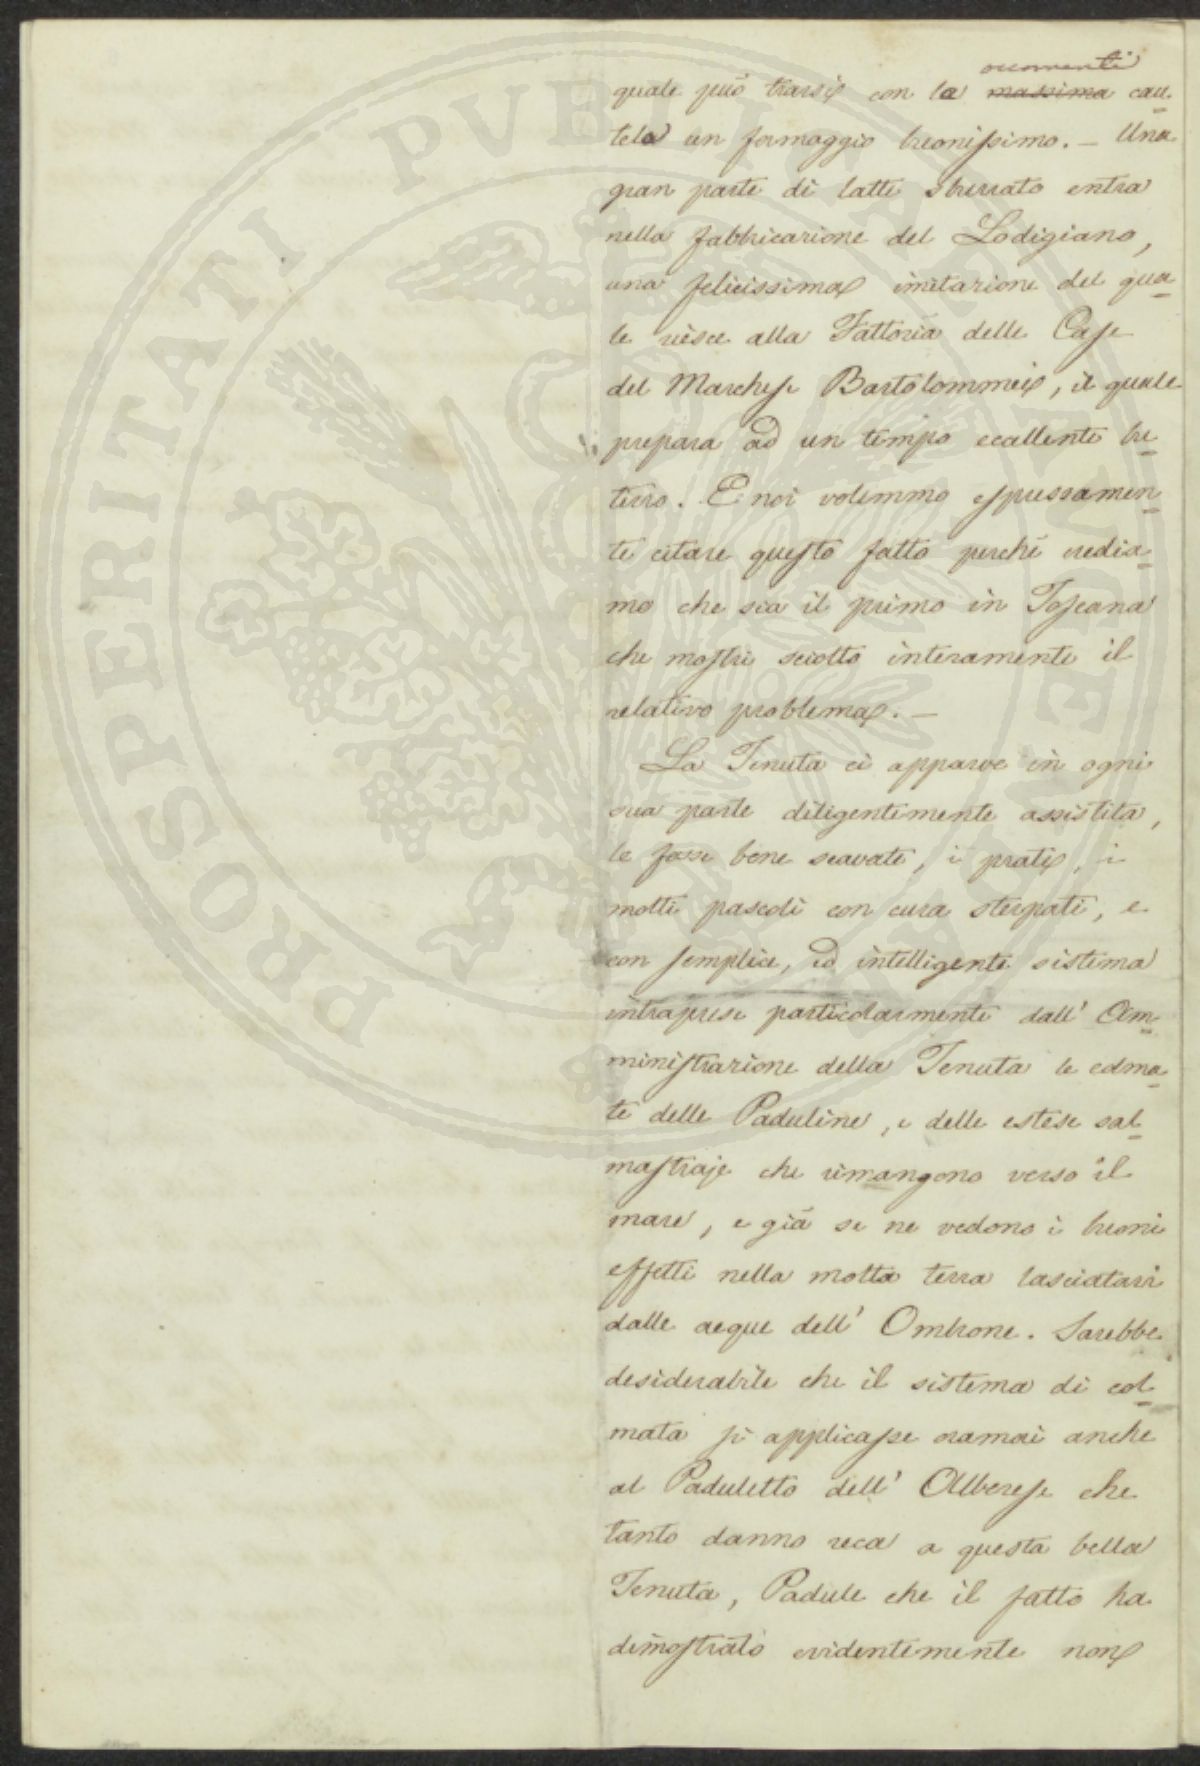 PROSPERITATI PVBLICAE AVGENDAE
occorrenti
quale può trarsi con la massima cau-
tela un formaggio buonissimo. — Una
gran parte di latte sburrato entra
nella fabbricazione del Lodigiano,
una felicissima imitazione del qua-
le riesce alla Fattoria delle Case
del Marchese Bartolommei, il quale
prepara ad un tempo eccellente bu-
tirro. E noi volemmo espressamen-
te citare questo fatto perchè credia-
mo che sia il primo in Toscana
che mostri sciolto interamente il
relativo problema. —
La Tenuta ci apparve in ogni
sua parte diligentemente assistita,
le fosse bene scavate, i prati, i
molti pascoli con cura sterpati, e
con semplice, ed intelligente sistema
intraprese particolarmente dall' Am-
ministrazione della Tenuta le colma-
te delle Paduline, e delle estese sal-
mastraje che rimangono verso il
mare, e già se ne vedono i buoni
effetti nella molta terra lasciatavi
dalle acque dell' Ombrone. Sarebbe
desiderabile che il sistema di col-
mata si applicasse oramai anche
al Paduletto dell' Alberese che
tanto danno reca a questa bella
Tenuta, Padule che il fatto ha
dimostrato evidentemente non